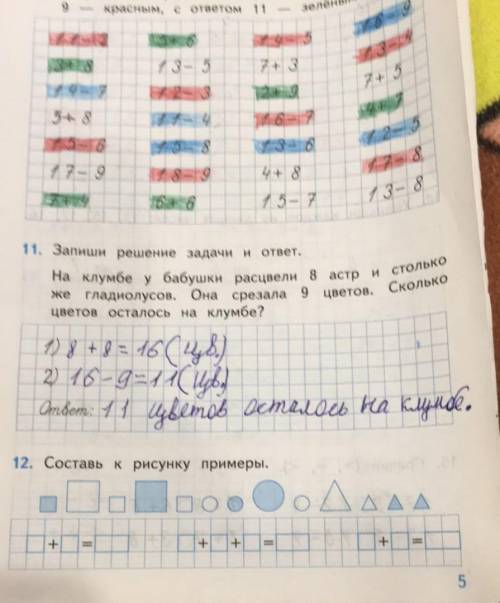 9 — красным, с ответом 11 — зелёным
11-2 5+6 14-5 16-9
3+8 13-5 7+3 13-4
14-7 12-3 2+9 7+5
5+8 11-4 16-7 4+7
15-6 15-8 13-6 12-5
17-9 18-9 4+8 17-8
7+4 6+6 15-7 13-8
11. Запиши решение задачи и ответ.
На клумбе у бабушки расцвели 8 астр и столько
же гладиолусов. Она срезала 9 цветов. Сколько
цветов осталось на клумбе?
1) 8 + 8 = 16 (цв.)
2) 16 - 9 = 11 (цв.)
Ответ: 11 цветов осталось на клумбе.
12. Составь к рисунку примеры.
+ = + + = + =
5